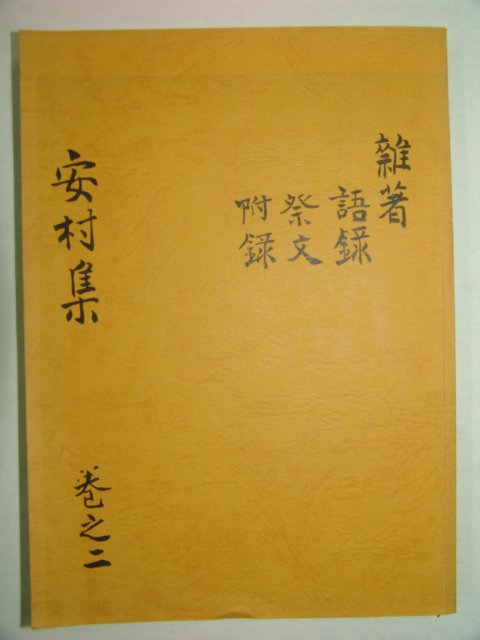 雜著
語録
祭文
附録
安村集
卷之二